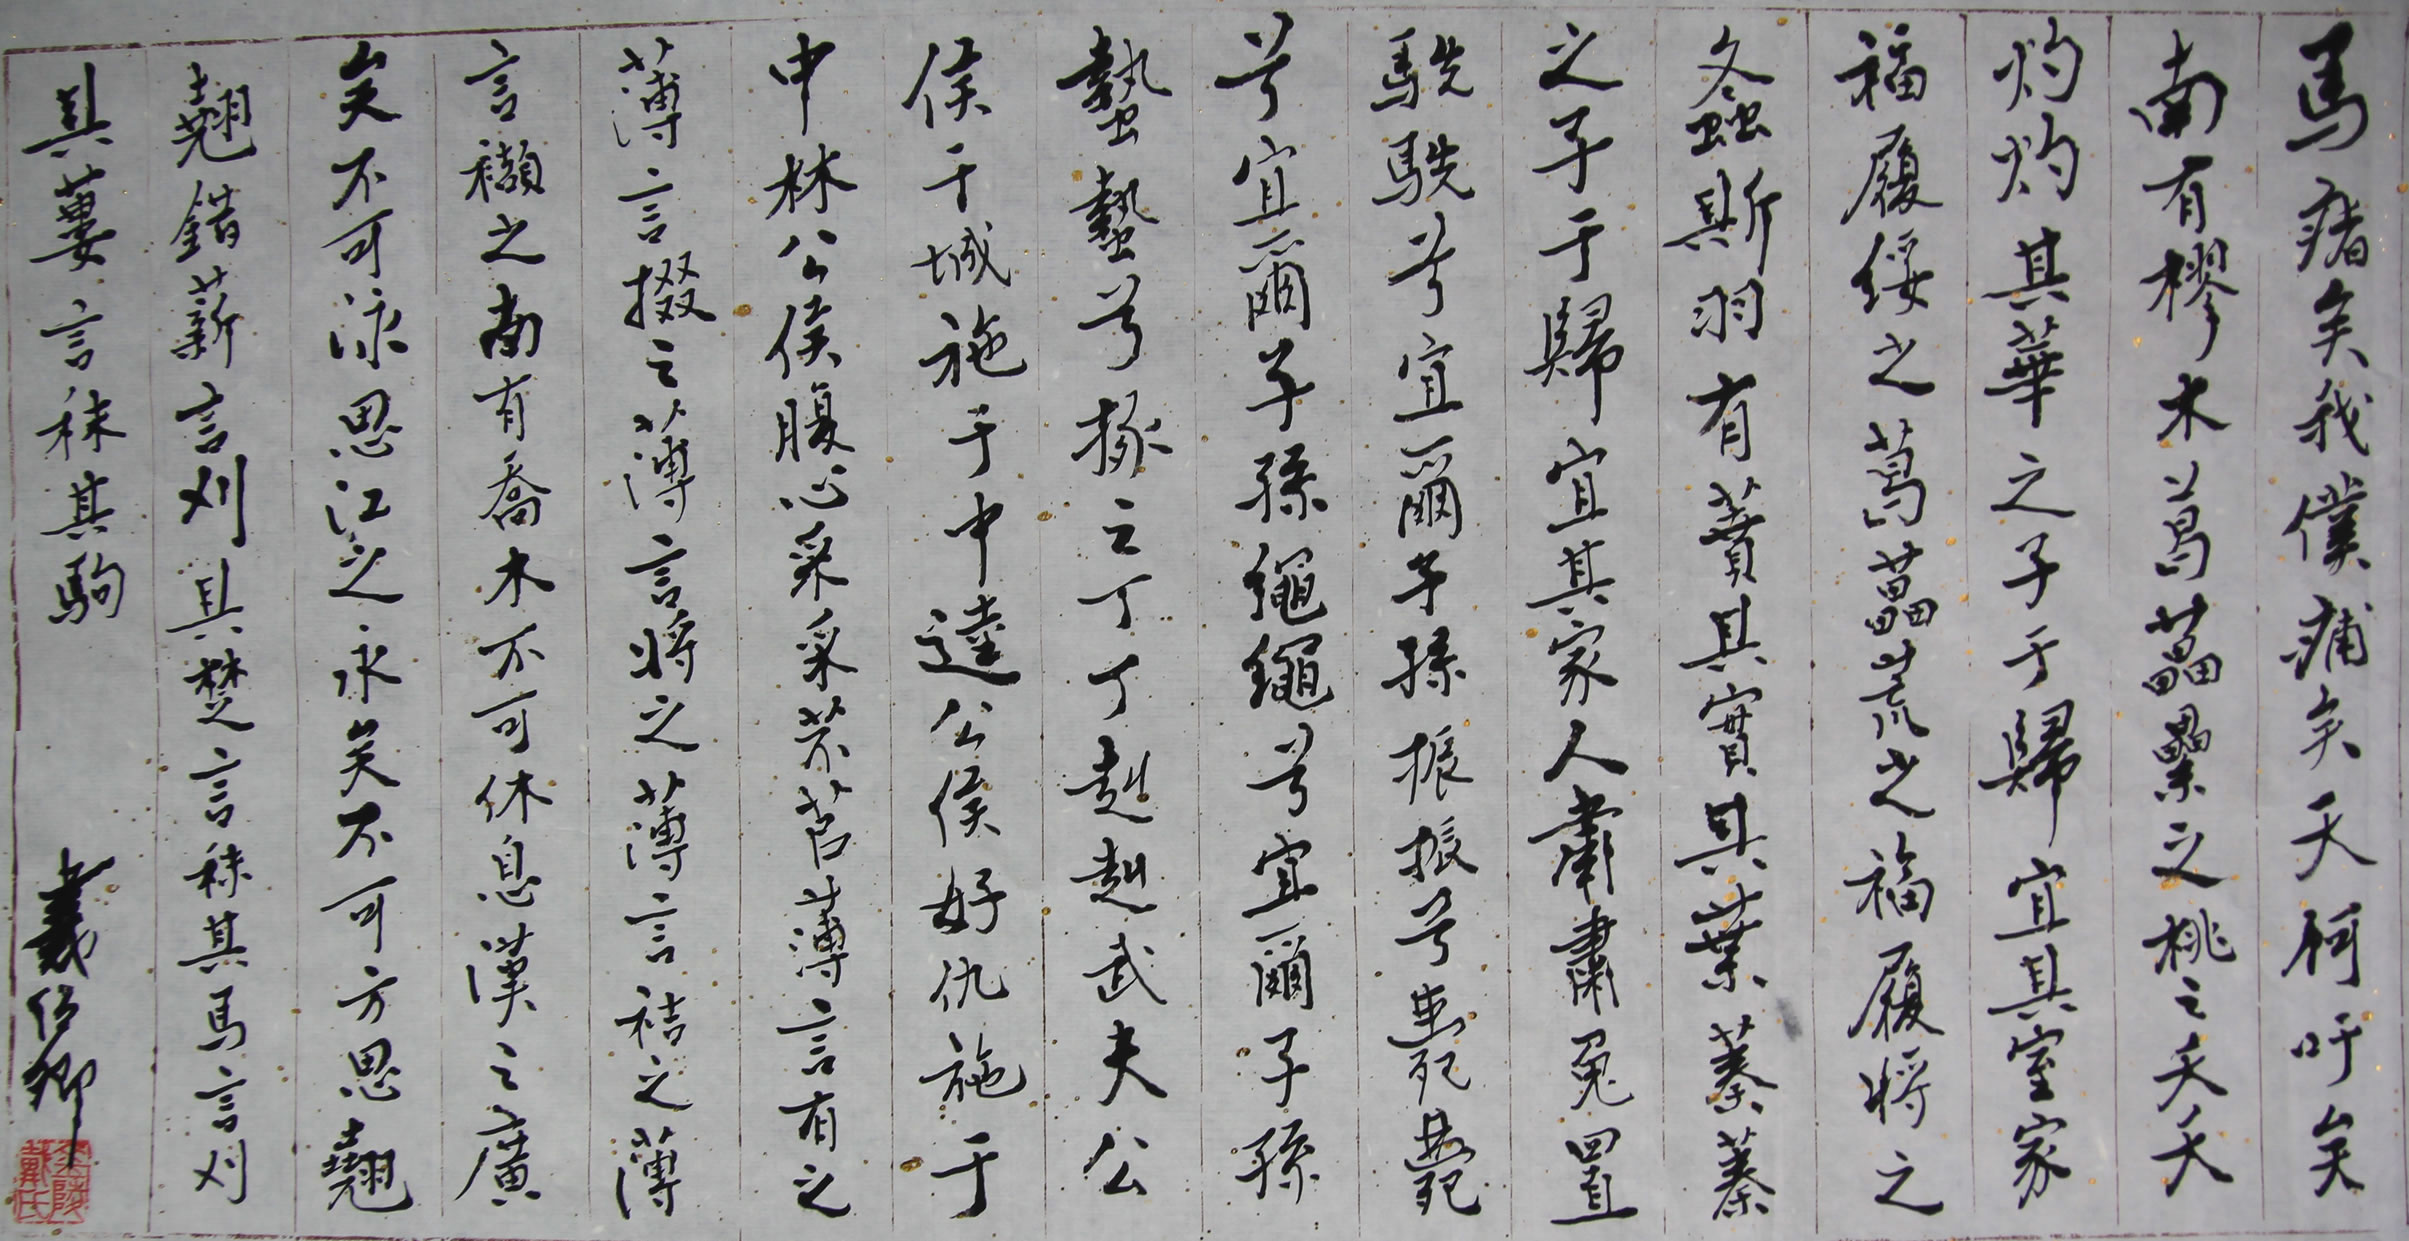 馬瘏矣我僕痡矣云何吁矣
南有樛木葛藟纍之桃之夭夭
灼灼其華之子于歸宜其室家
福履綏之葛藟荒之福履將之
螽斯羽有蕡其實其葉蓁蓁
之子于歸宜其家人肅肅兔罝
駪駪兮宜爾子孫振振兮薨薨
兮宜爾子孫繩繩兮宜爾子孫
蟄蟄兮椓之丁丁赳赳武夫公
侯干城施于中逵公侯好仇施于
中林公侯腹心采采芣苢薄言有之
薄言掇之薄言將之薄言袺之薄
言襭之南有喬木不可休息漢之廣
矣不可泳思江之永矣不可方思翹
翹錯薪言刈其楚言秣其馬言刈
其蔞言秣其駒